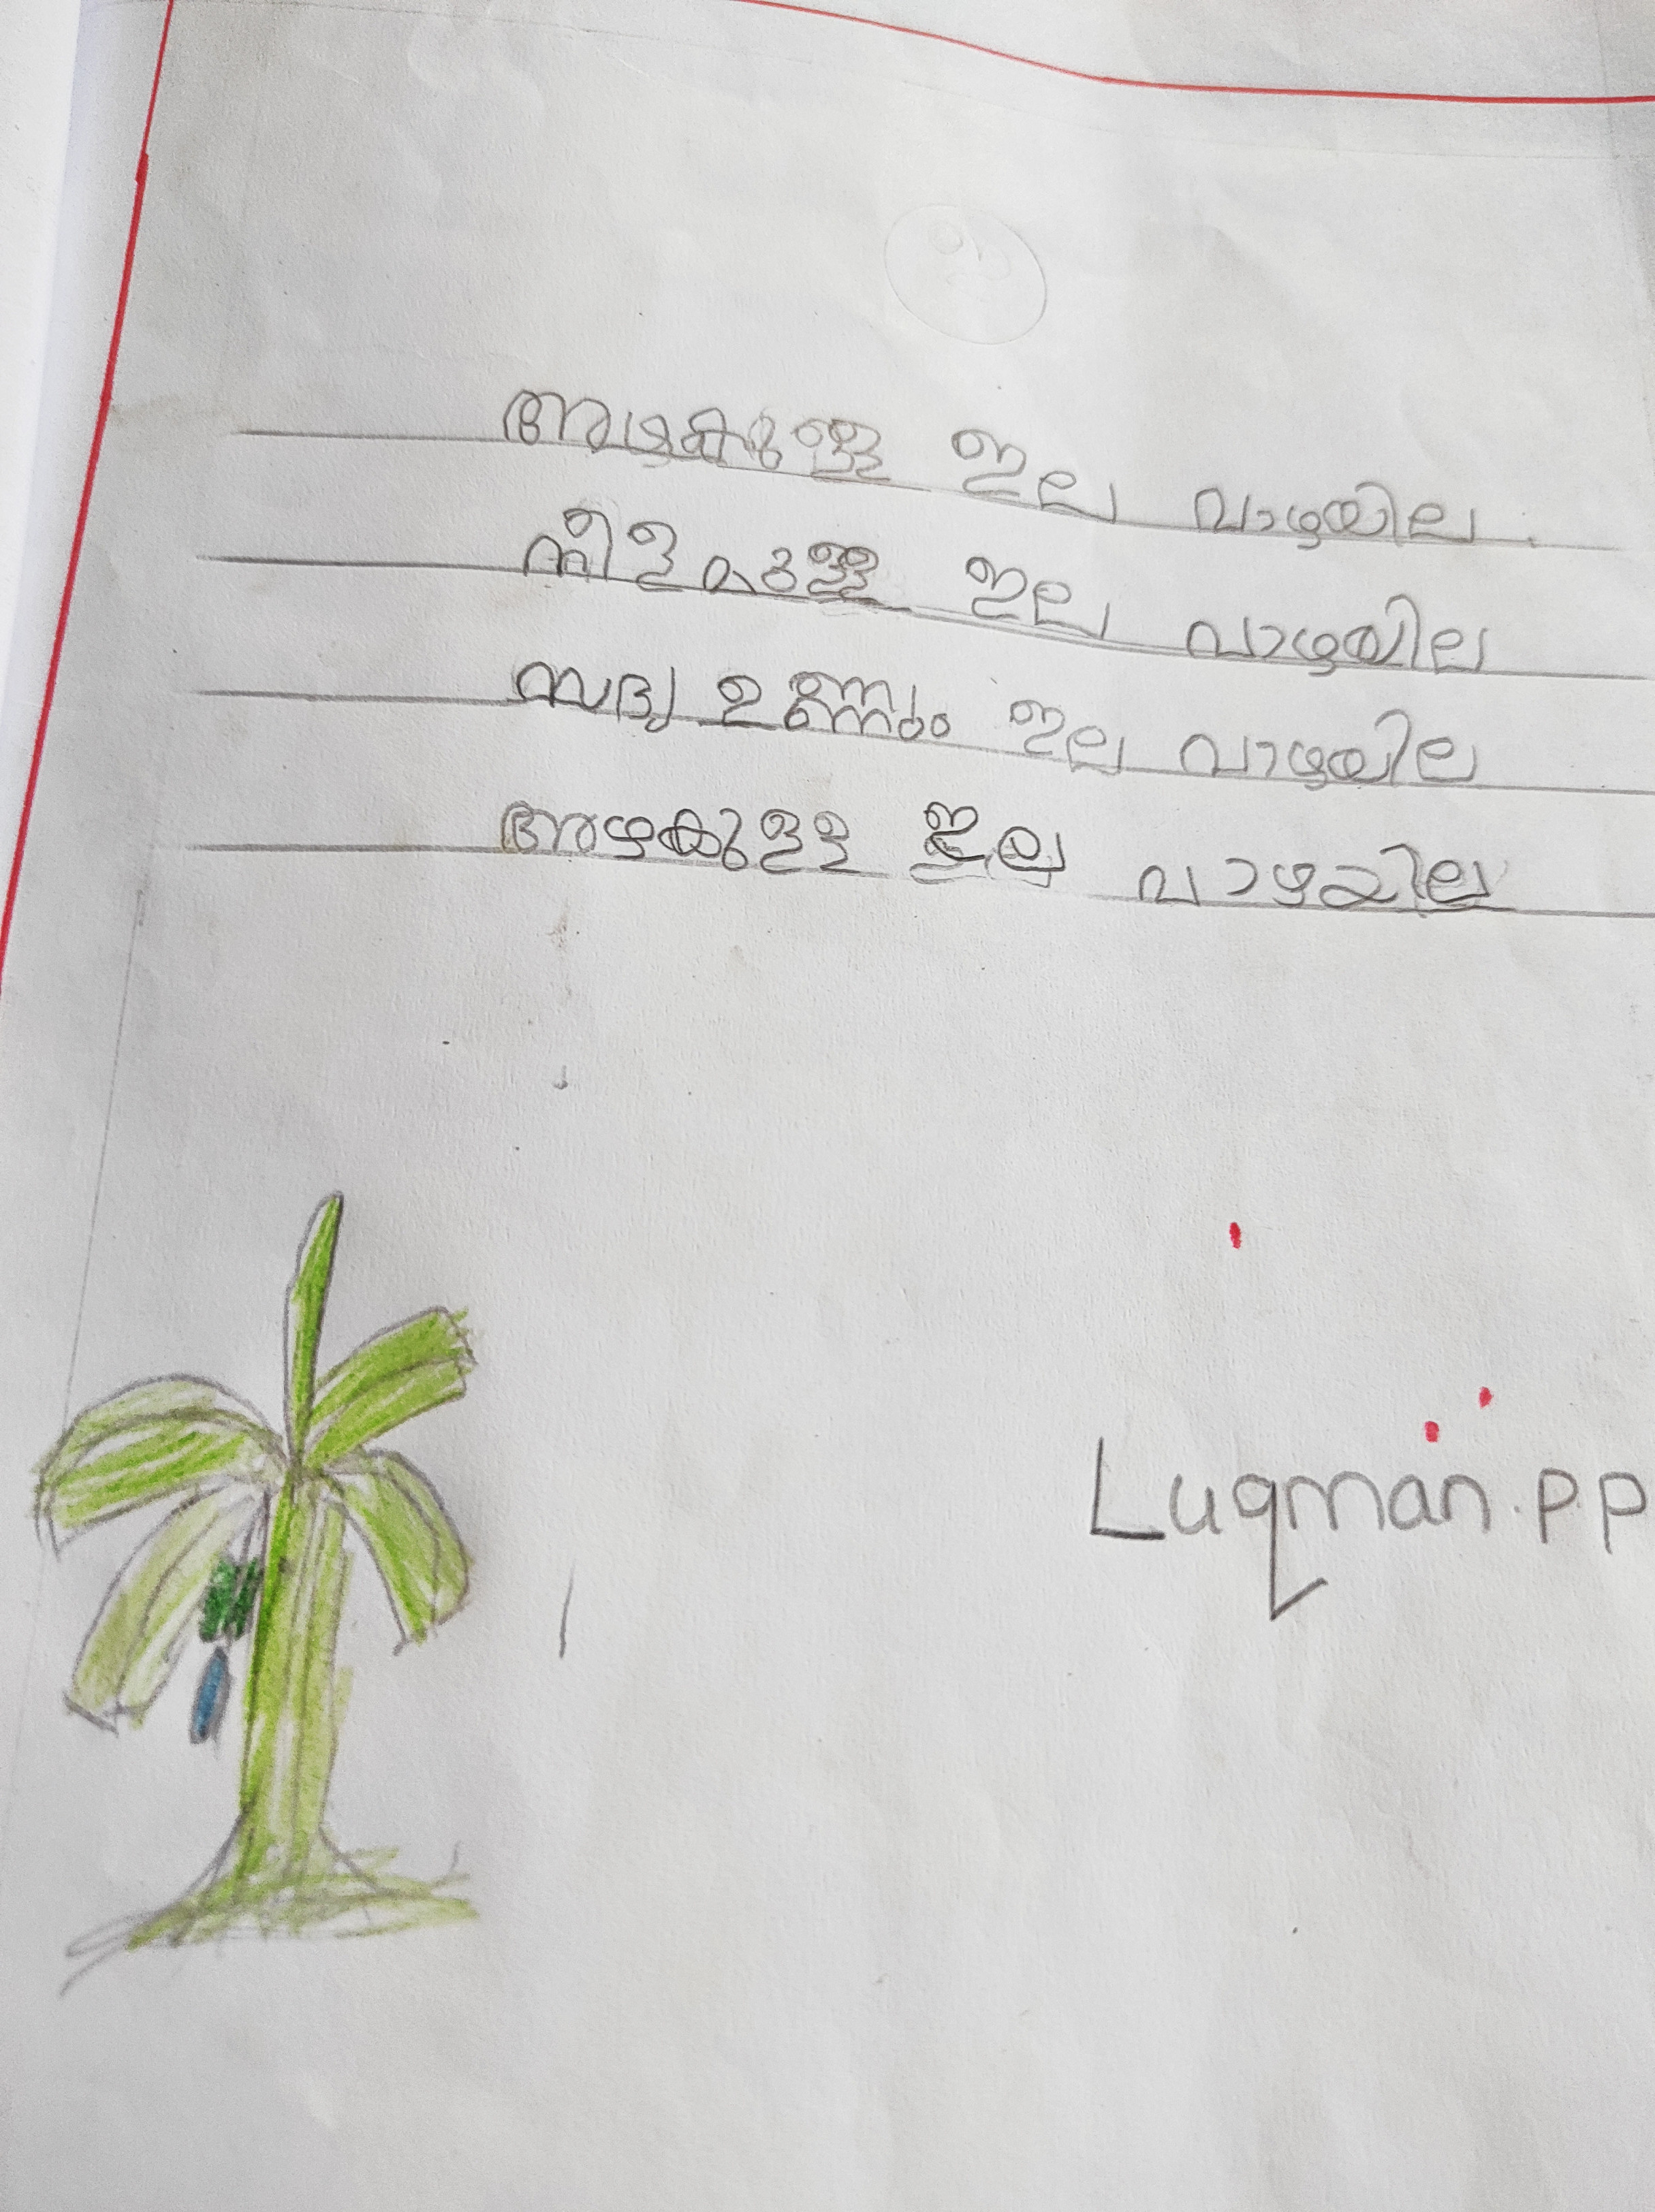 അഴകുള്ള ഇല വാഴയില.
നീളമുള്ള ഇല വാഴയില
സദ്യ ഉണ്ണും ഇല വാഴയില
അഴകുളള ഇല വാഴയില
Luqman.p.p